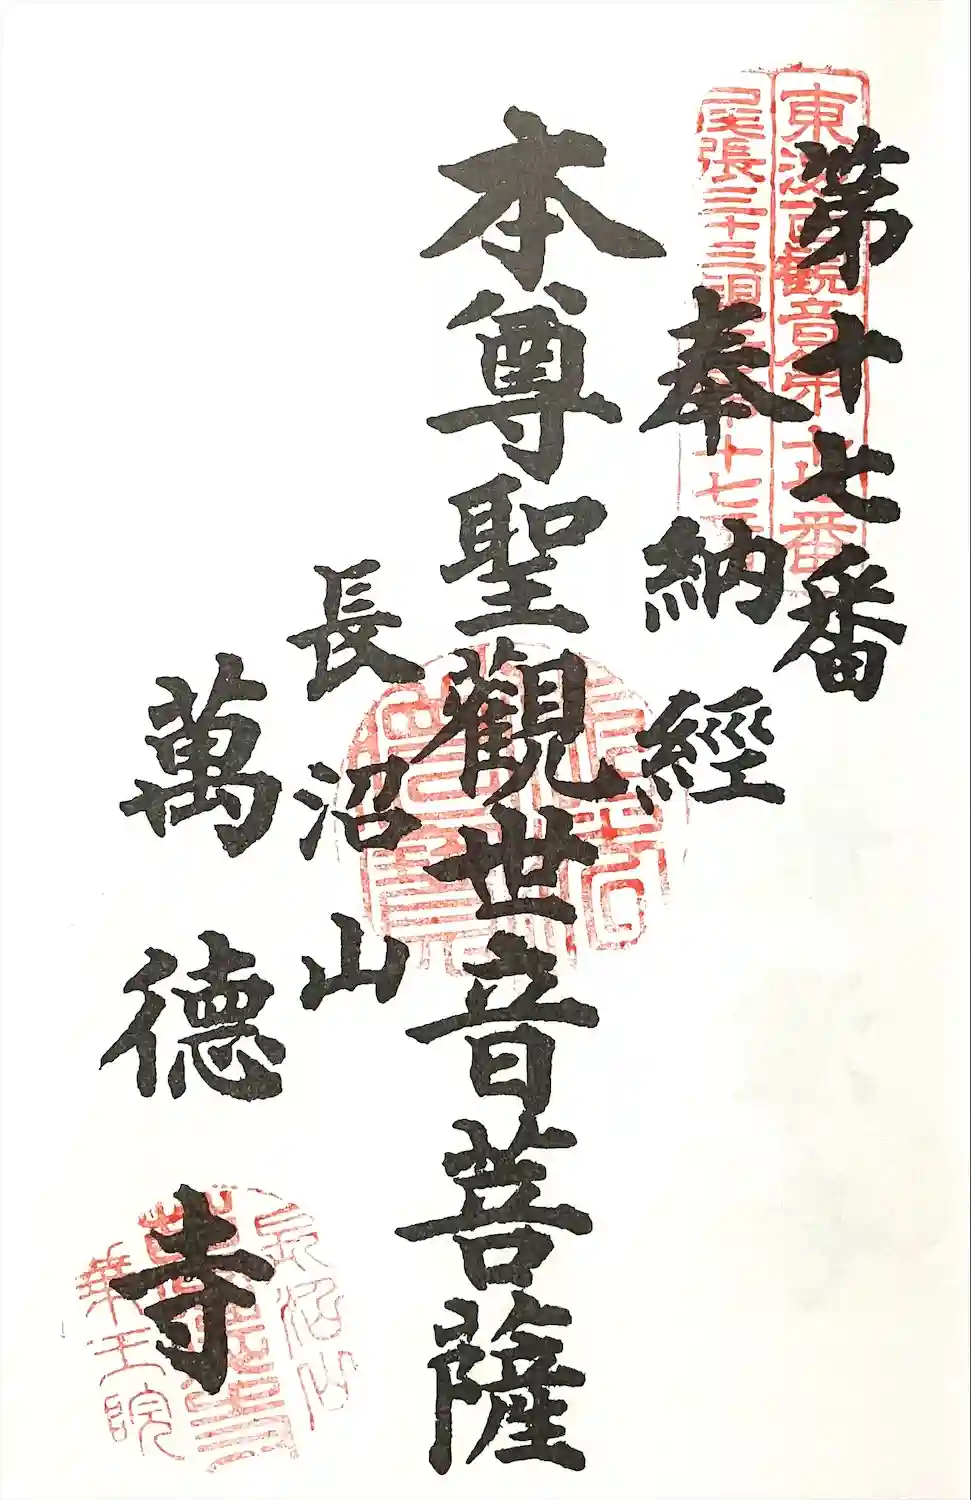 第十七番
奉納經
本尊聖觀世音菩薩
長沼山
萬德寺
東海百観音第十七番
尾張三十三観音第十七番
長沼山
萬德寺
乗王院